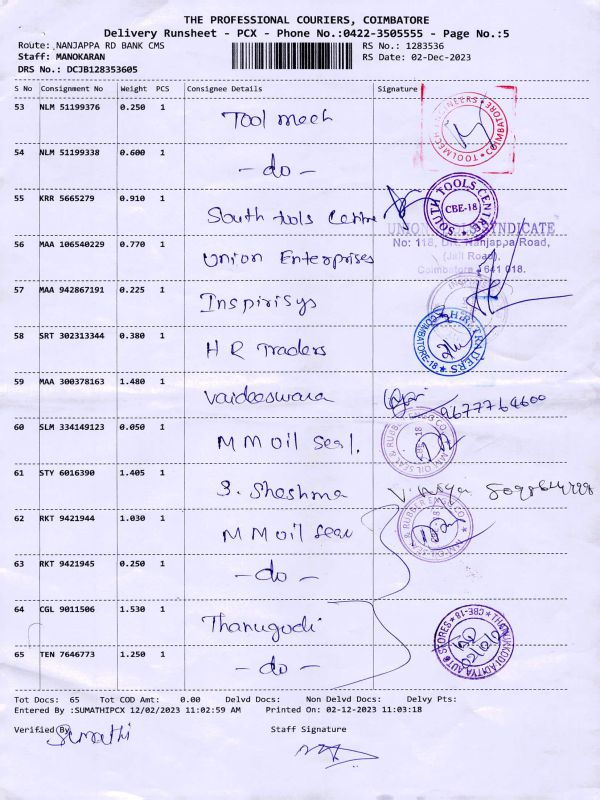 THE PROFESSIONAL COURIERS, COIMBATORE
Delivery Runsheet - PCX - Phone No.:0422-3505555 - Page No.:5
Route: NANJAPPA RD BANK CMS RS No.: 1283536
Staff: MANOKARAN RS Date: 02-Dec-2023
DRS No.: DCJB128353605
S No Consignment No Weight PCS Consignee Details Signature
53 NLM 51199376 0.250 1 Tool mech
TOOLMECH ENGINEERS COIMBATORE
54 NLM 51199338 0.600 1 - do -
55 KRR 5665279 0.910 1 South tools Centre
SOUTH TOOLS CENTRE
CBE-18
UNION SYNDICATE
No: 118, Dr. Nanjappa Road,
(Jail Road),
Coimbatore - 641 018.
56 MAA 106540229 0.770 1 Union Enterprises
57 MAA 942867191 0.225 1 Inspirisys
58 SRT 302313344 0.380 1 H R Traders
H.R. TRADERS COIMBATORE-18
59 MAA 300378163 1.480 1 Vaideeswara 9677764600
60 SLM 334149123 0.050 1 M M oil Seal.
M M OIL SEAL & RUBBER ENGG CO.
61 STY 6016390 1.405 1 S. Sheshma
62 RKT 9421944 1.030 1 M M oil Seal
M M OIL SEAL & RUBBER ENGG CO.
63 RKT 9421945 0.250 1 - do -
64 CGL 9011506 1.530 1 Thanugodi
AUTO STORES CBE-18
65 TEN 7646773 1.250 1 - do -
Tot Docs: 65 Tot COD Amt: 0.00 Delvd Docs: Non Delvd Docs: Delvy Pts:
Entered By :SUMATHIPCX 12/02/2023 11:02:59 AM Printed On: 02-12-2023 11:03:18
Verified By Staff Signature
Sumathi